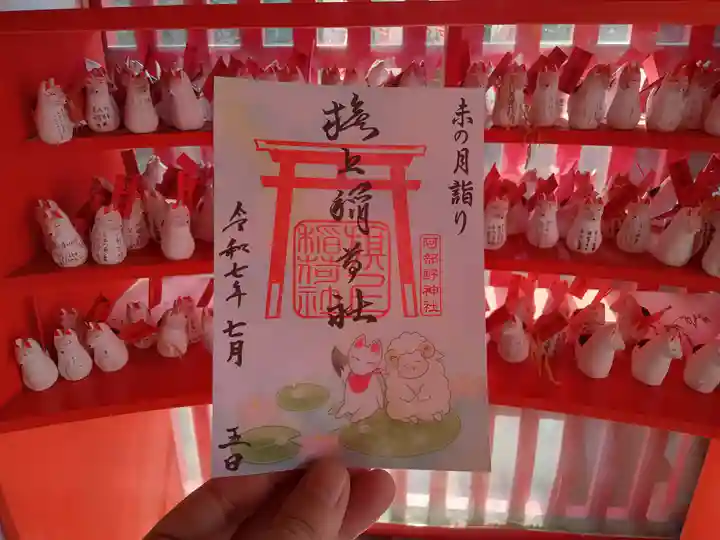 未の月詣り
阿部野神社
旗上稲荷社
旗上
稲荷社
令和七年七月五日